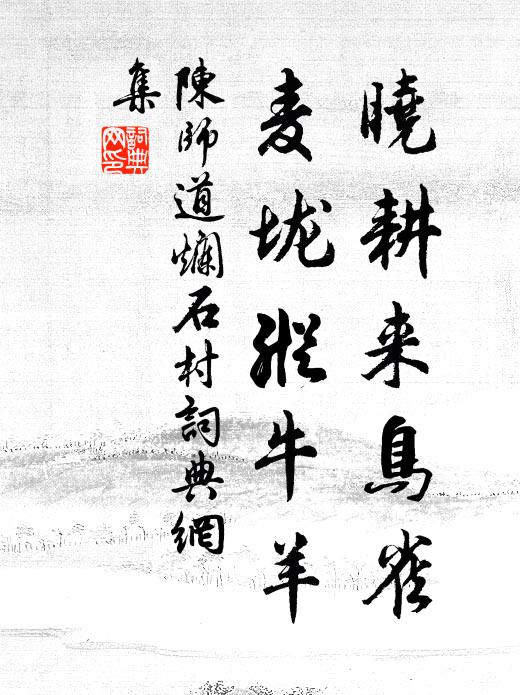 曉耕来鳥雀
麦垅縱牛羊
陳師道爛石村詞典網
集
詞典
网印